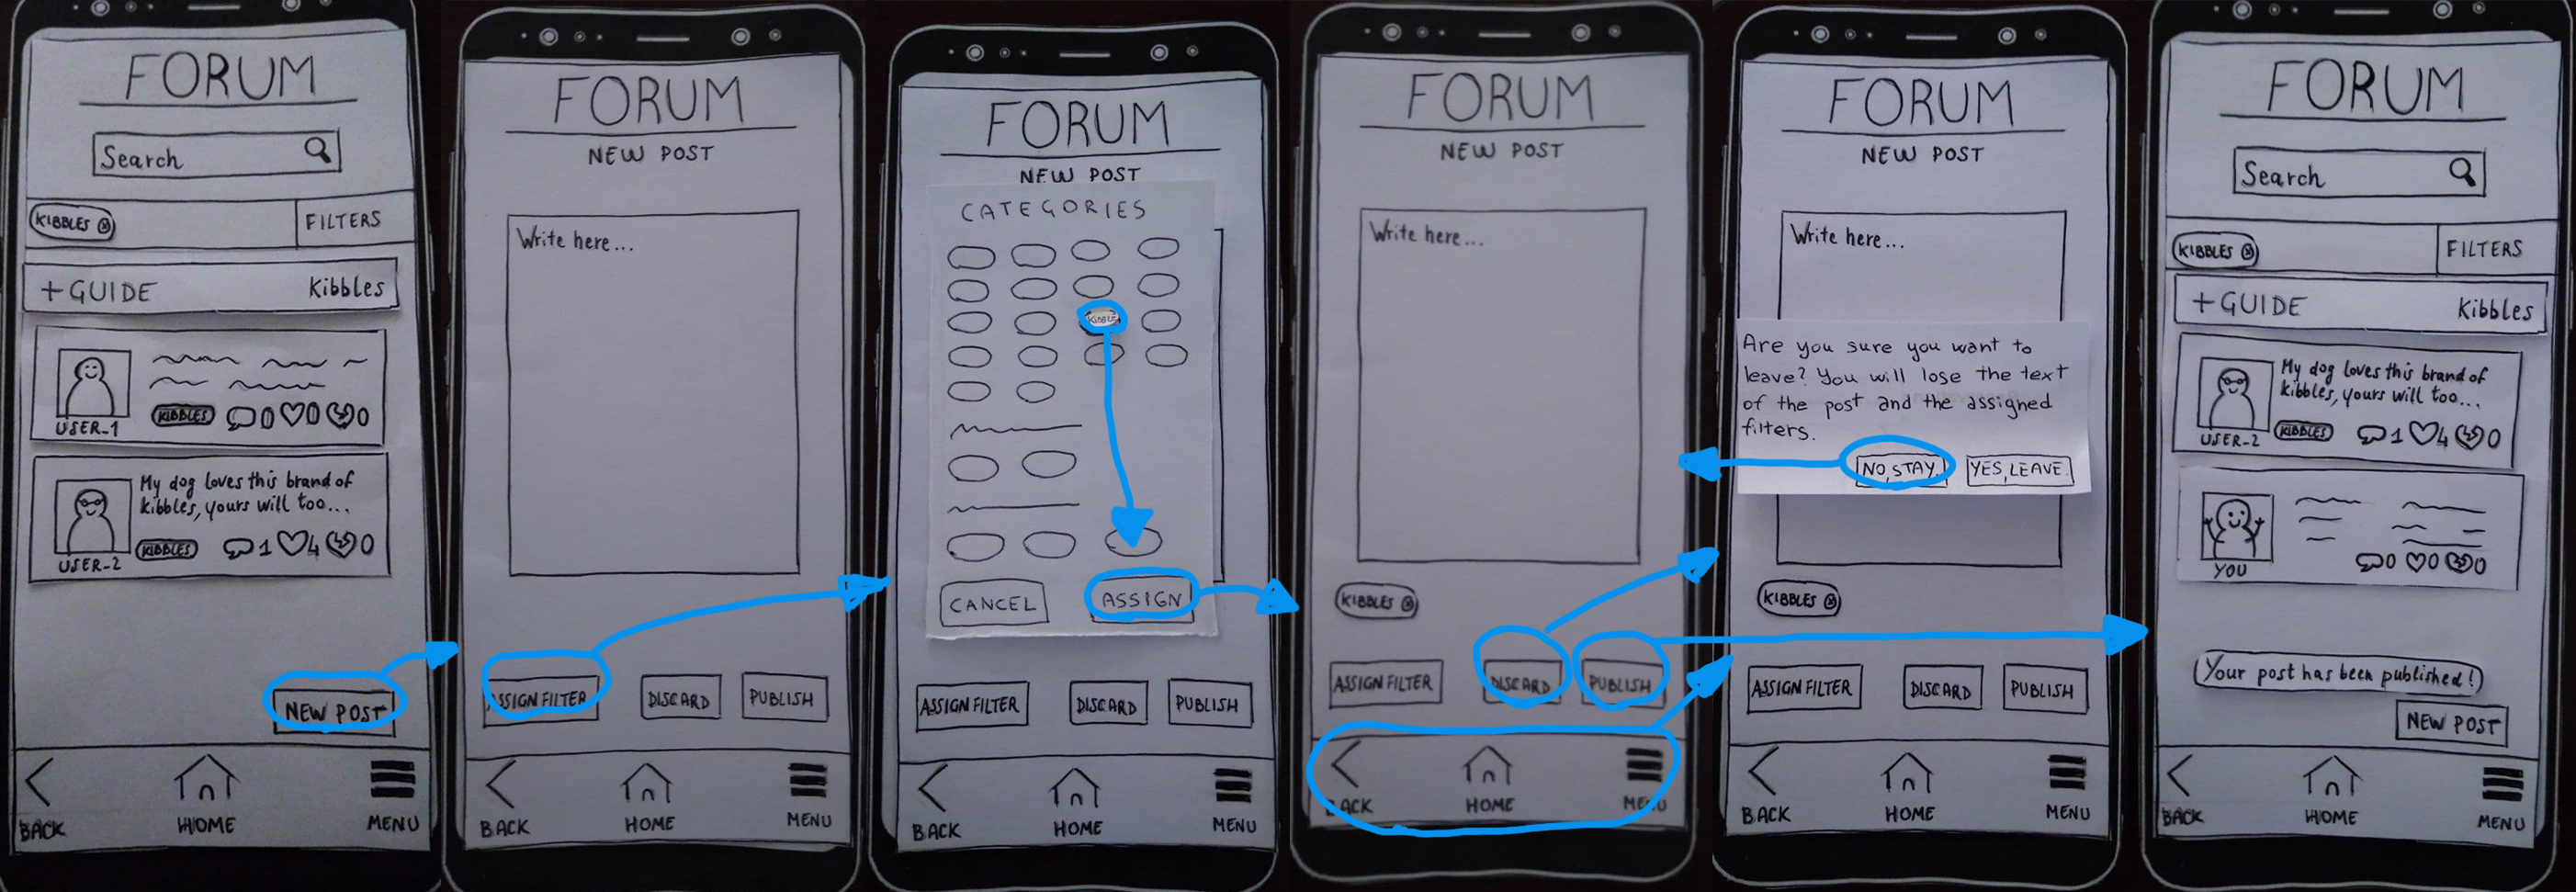 FORUM
Search
KIBBLES ⊗
FILTERS
+GUIDE Kibbles
USER_1
KIBBLES 0 0 0
My dog loves this brand of
kibbles, yours will too...
USER_2
KIBBLES 1 4 0
NEW POST
BACK HOME MENU
FORUM
NEW POST
Write here...
ASSIGN FILTER DISCARD PUBLISH
BACK HOME MENU
FORUM
NEW POST
CATEGORIES
KIBBLE
CANCEL ASSIGN
ASSIGN FILTER DISCARD PUBLISH
BACK HOME MENU
FORUM
NEW POST
Write here...
KIBBLES ⊗
ASSIGN FILTER DISCARD PUBLISH
BACK HOME MENU
FORUM
NEW POST
Write here...
Are you sure you want to
leave? You will lose the text
of the post and the assigned
filters.
NO, STAY. YES, LEAVE.
KIBBLES ⊗
ASSIGN FILTER DISCARD PUBLISH
BACK HOME MENU
FORUM
Search
KIBBLES ⊗
FILTERS
+GUIDE Kibbles
My dog loves this brand of
kibbles, yours will too...
USER_2
KIBBLES 1 4 0
YOU
0 0 0
Your post has been published!
NEW POST
BACK HOME MENU